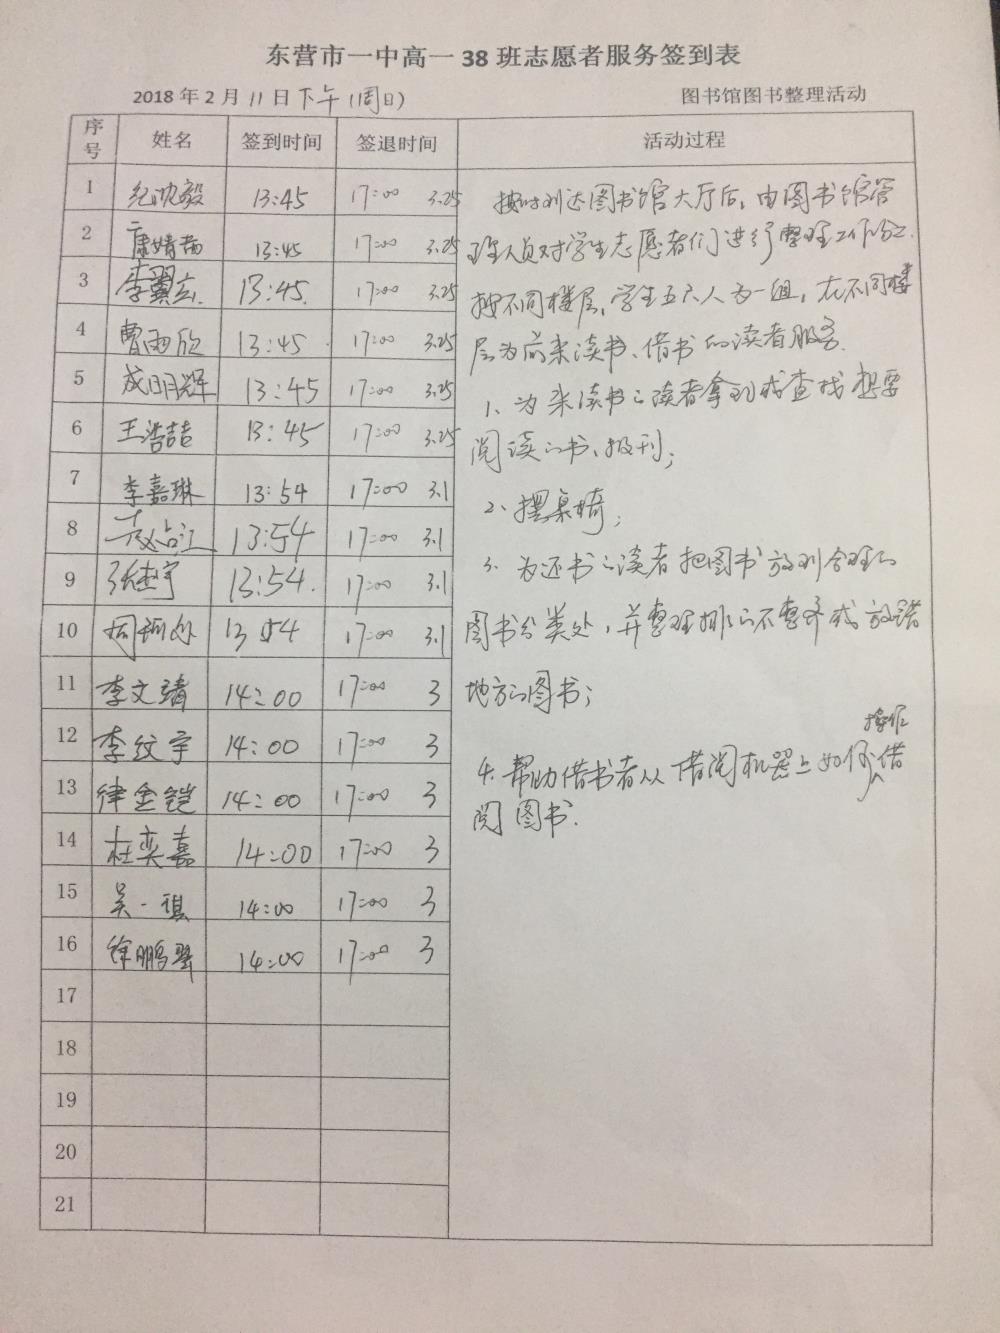 东营市一中高一 38 班志愿者服务签到表
2018 年 2 月 11 日下午(周日) 图书馆图书整理活动
序号 姓名 签到时间 签退时间 活动过程
1 纪沈毅 13:45 17:00 3.25
2 康婧茜 13:45 17:00 3.25
3 李翼志 13:45 17:00 3.25
4 曹雨欣 13:45 17:00 3.25
5 成明辉 13:45 17:00 3.25
6 王浩喆 13:45 17:00 3.25
7 李嘉琳 13:54 17:00 3.1
8 13:54 17:00 3.1
9 张建宇 13:54. 17:00 3.1
10 13 54 17:00 3.1
11 李文靖 14:00 17:00 3
12 李纹宇 14:00 17:00 3
13 律金铠 14:00 17:00 3
14 杜奕嘉 14:00 17:00 3
15 吴一祺 14:00 17:00 3
16 徐鹏 14:00 17:00 3
17
18
19
20
21
按时到达图书馆大厅后,由图书馆管
理人员对学生志愿者们进行整理工作分工.
按不同楼层,学生五六人为一组,在不同楼
层为前来读书、借书的读者服务.
1、为来读书的读者拿到或查找想要
阅读的书、报刊;
2、摆桌椅;
3、为还书的读者把图书放到合理的
图书分类处,并整理排的不整齐或放错
地方的图书;
4.帮助借书者从借阅机器上如何操作借
阅图书.